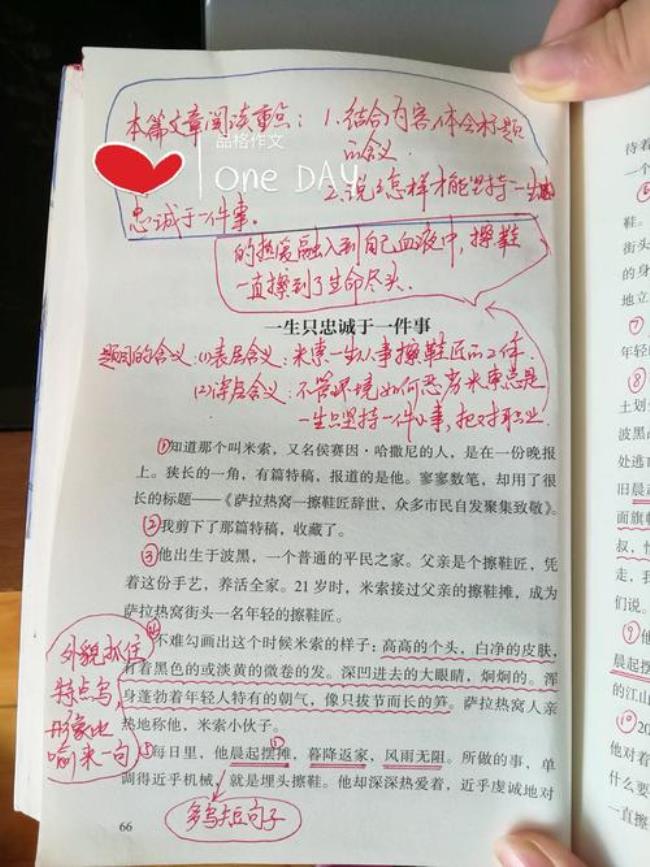 本篇文章阅读重点：1.结合内容,体会标题
的含义.
品格作文
one DAY
2.说说怎样才能坚持一生
忠诚于一件事。
的热爱融入到自己血液中,擦鞋
一直擦到了生命尽头.
一生只忠诚于一件事
题目的含义:(1)表层含义:米索一生从事擦鞋匠的工作.
(2)深层含义:不管环境如何恶劣米索总是
一生只坚持一件小事,把对职业
①知道那个叫米索，又名侯赛因·哈撒尼的人，是在一份晚报
上。狭长的一角，有篇特稿，报道的是他。寥寥数笔，却用了很
长的标题——《萨拉热窝一擦鞋匠辞世，众多市民自发聚集致敬》。
②我剪下了那篇特稿，收藏了。
③他出生于波黑，一个普通的平民之家。父亲是个擦鞋匠，凭
着这份手艺，养活全家。21岁时，米索接过父亲的擦鞋摊，成为
萨拉热窝街头一名年轻的擦鞋匠。
④不难勾画出这个时候米索的样子：高高的个头，白净的皮肤，
有着黑色的或淡黄的微卷的发。深凹进去的大眼睛，炯炯的。浑
身蓬勃着年轻人特有的朝气，像只拔节而长的笋。萨拉热窝人亲
热地称他，米索小伙子。
外貌抓住
特点写,
形象比
喻来一句
⑤每日里，他晨起摆摊，暮降返家，风雨无阻。所做的事，单
调得近乎机械，就是埋头擦鞋。他却深深热爱着，近乎虔诚地对
多写短句子
66
待着
一个
⑥
鞋。
街头
的身
地立
⑦
年轻
⑧
土划
波黑
处逃
旧晨
面旗
叔，
走，我
们说。
⑨他
晨起摆
的江山
⑩20
他对着
什么要
一直擦